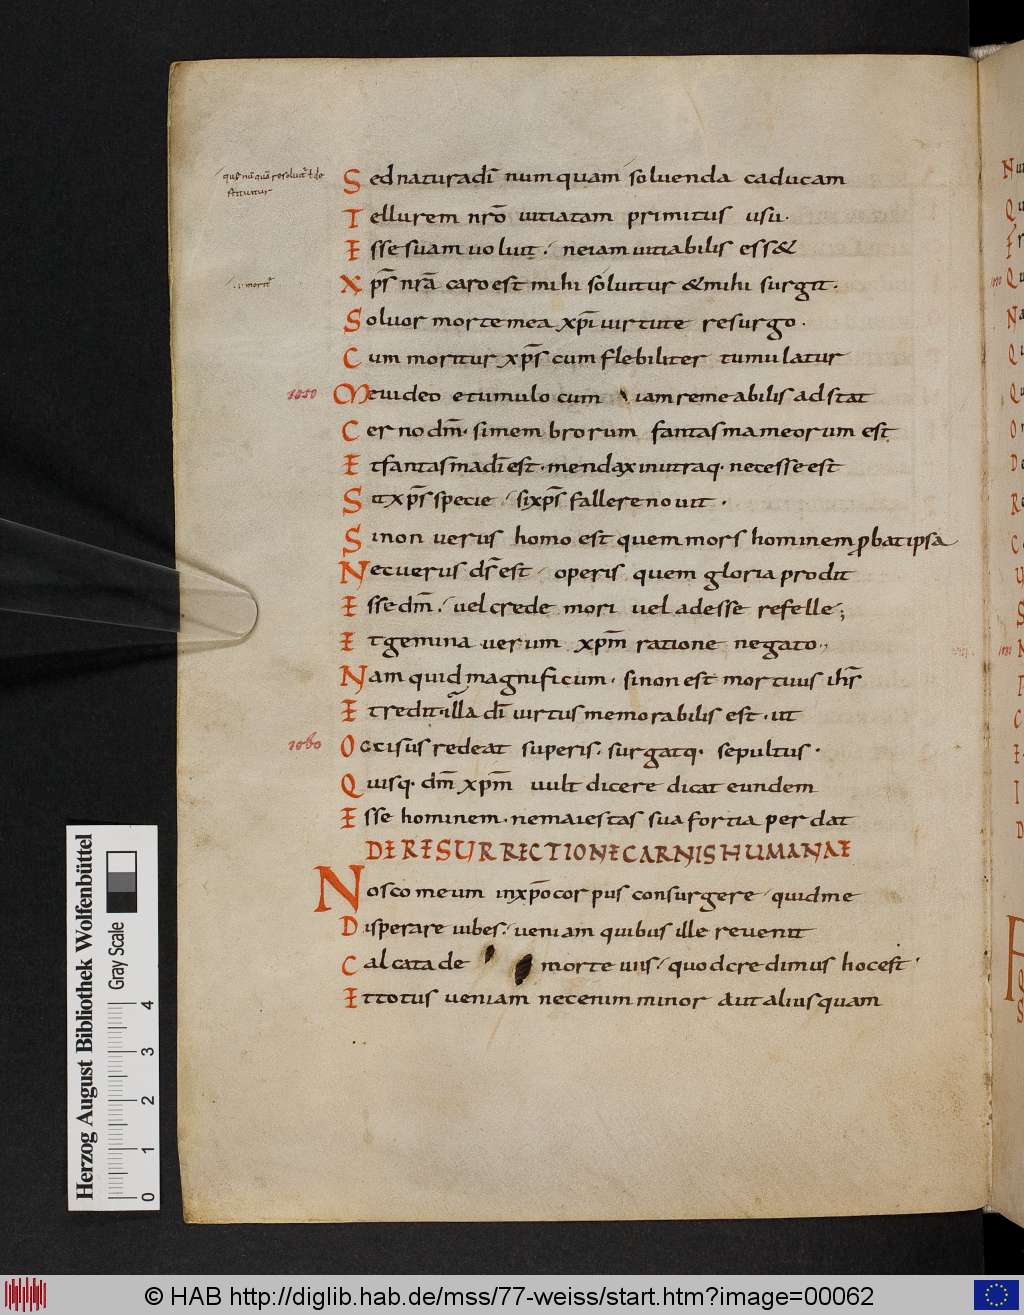 Sed natura dī numquam soluenda caducam
Tellurem nr̄o uitiatam primitus usu.
Esse suam uoluit. ne iam uitiabilis ess&
Xp̄s nr̄a caro est mihi soluitur & mihi surgit.
Soluor morte mea xp̄i uirtute resurgo.
Cum moritur xp̄s cum flebiliter tumulatur
1050 Me uideo e tumulo cum iam remeabilis adstat
Cerno dm̄. si membrorum fantasma meorum est
Et fantasma dī est. mendax in utraq. necesse est
Sit xp̄s specie. si xp̄s fallere nouit.
Si non uerus homo est quem mors hominem probat ipsa
Nec uerus ds̄ est operis quem gloria prodit
Esse dm̄. uel crede mori uel adesse refelle;
Et gemina uerum xp̄m ratione negato.
Nam quid magnificum. si non est mortuus ihs̄
Et redit. illa dī uirtus memorabilis est. ut
1060 Occisus redeat superis. surgatq. sepultus.
Quisq. dm̄ xp̄m uult dicere dicat eundem
Esse hominem. ne maiestas sua fortia perdat
DE RESURRECTIONE CARNIS HUMANAE
Nosco meum in xp̄o corpus consurgere quid me
Disperare iubes. ueniam quibus ille reuenit
Calcata de morte uiis. quod credimus hoc est
Et totus ueniam nec enim minor aut alius quam
Herzog August Bibliothek Wolfenbüttel
Gray Scale
0 1 2 3 4
© HAB http://diglib.hab.de/mss/77-weiss/start.htm?image=00062